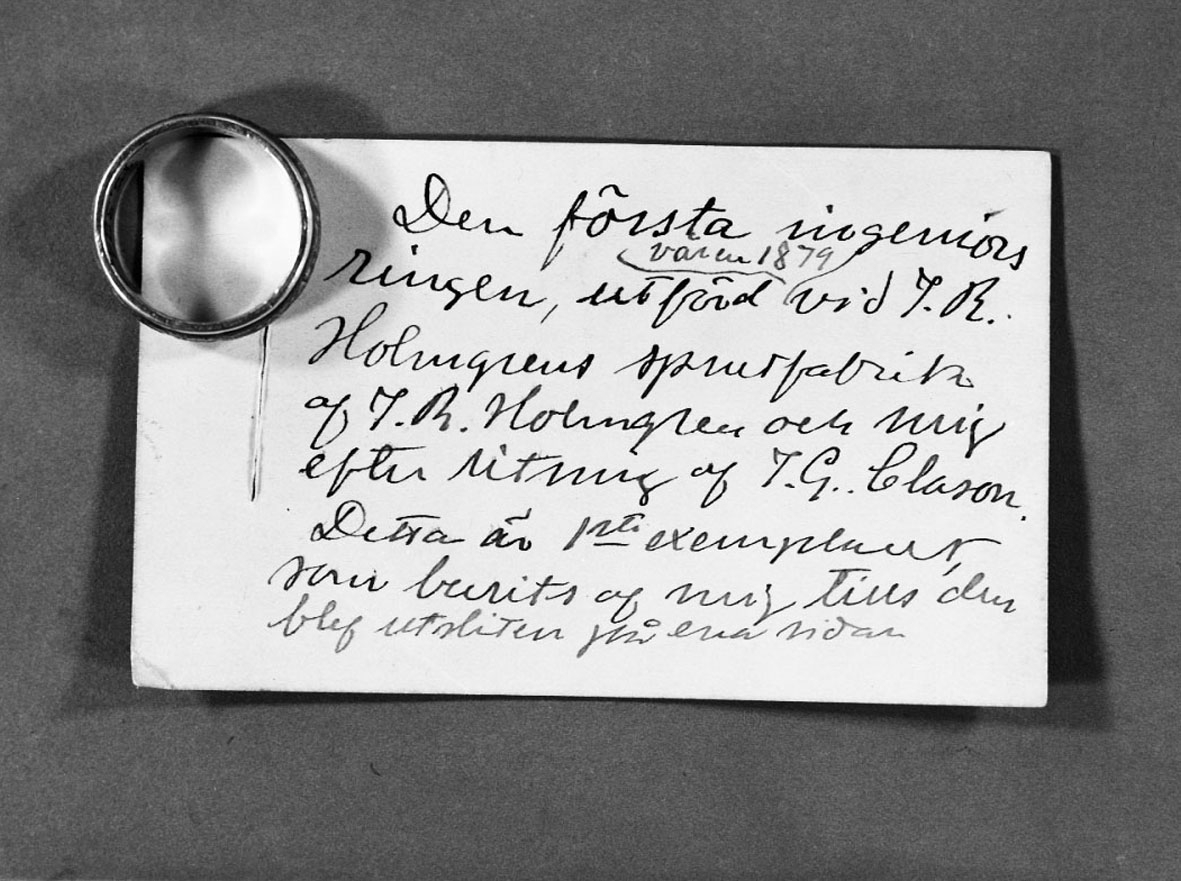 Den första ingeniörs
våren 1879
ringen, utförd vid J. R.
Holmgrens sprutfabrik
af J. R. Holmgren och mig
efter ritning af I. G. Clason.
Detta är 1sta exemplaret,
som burits af mig tills den
blef utsliten på ena sidan